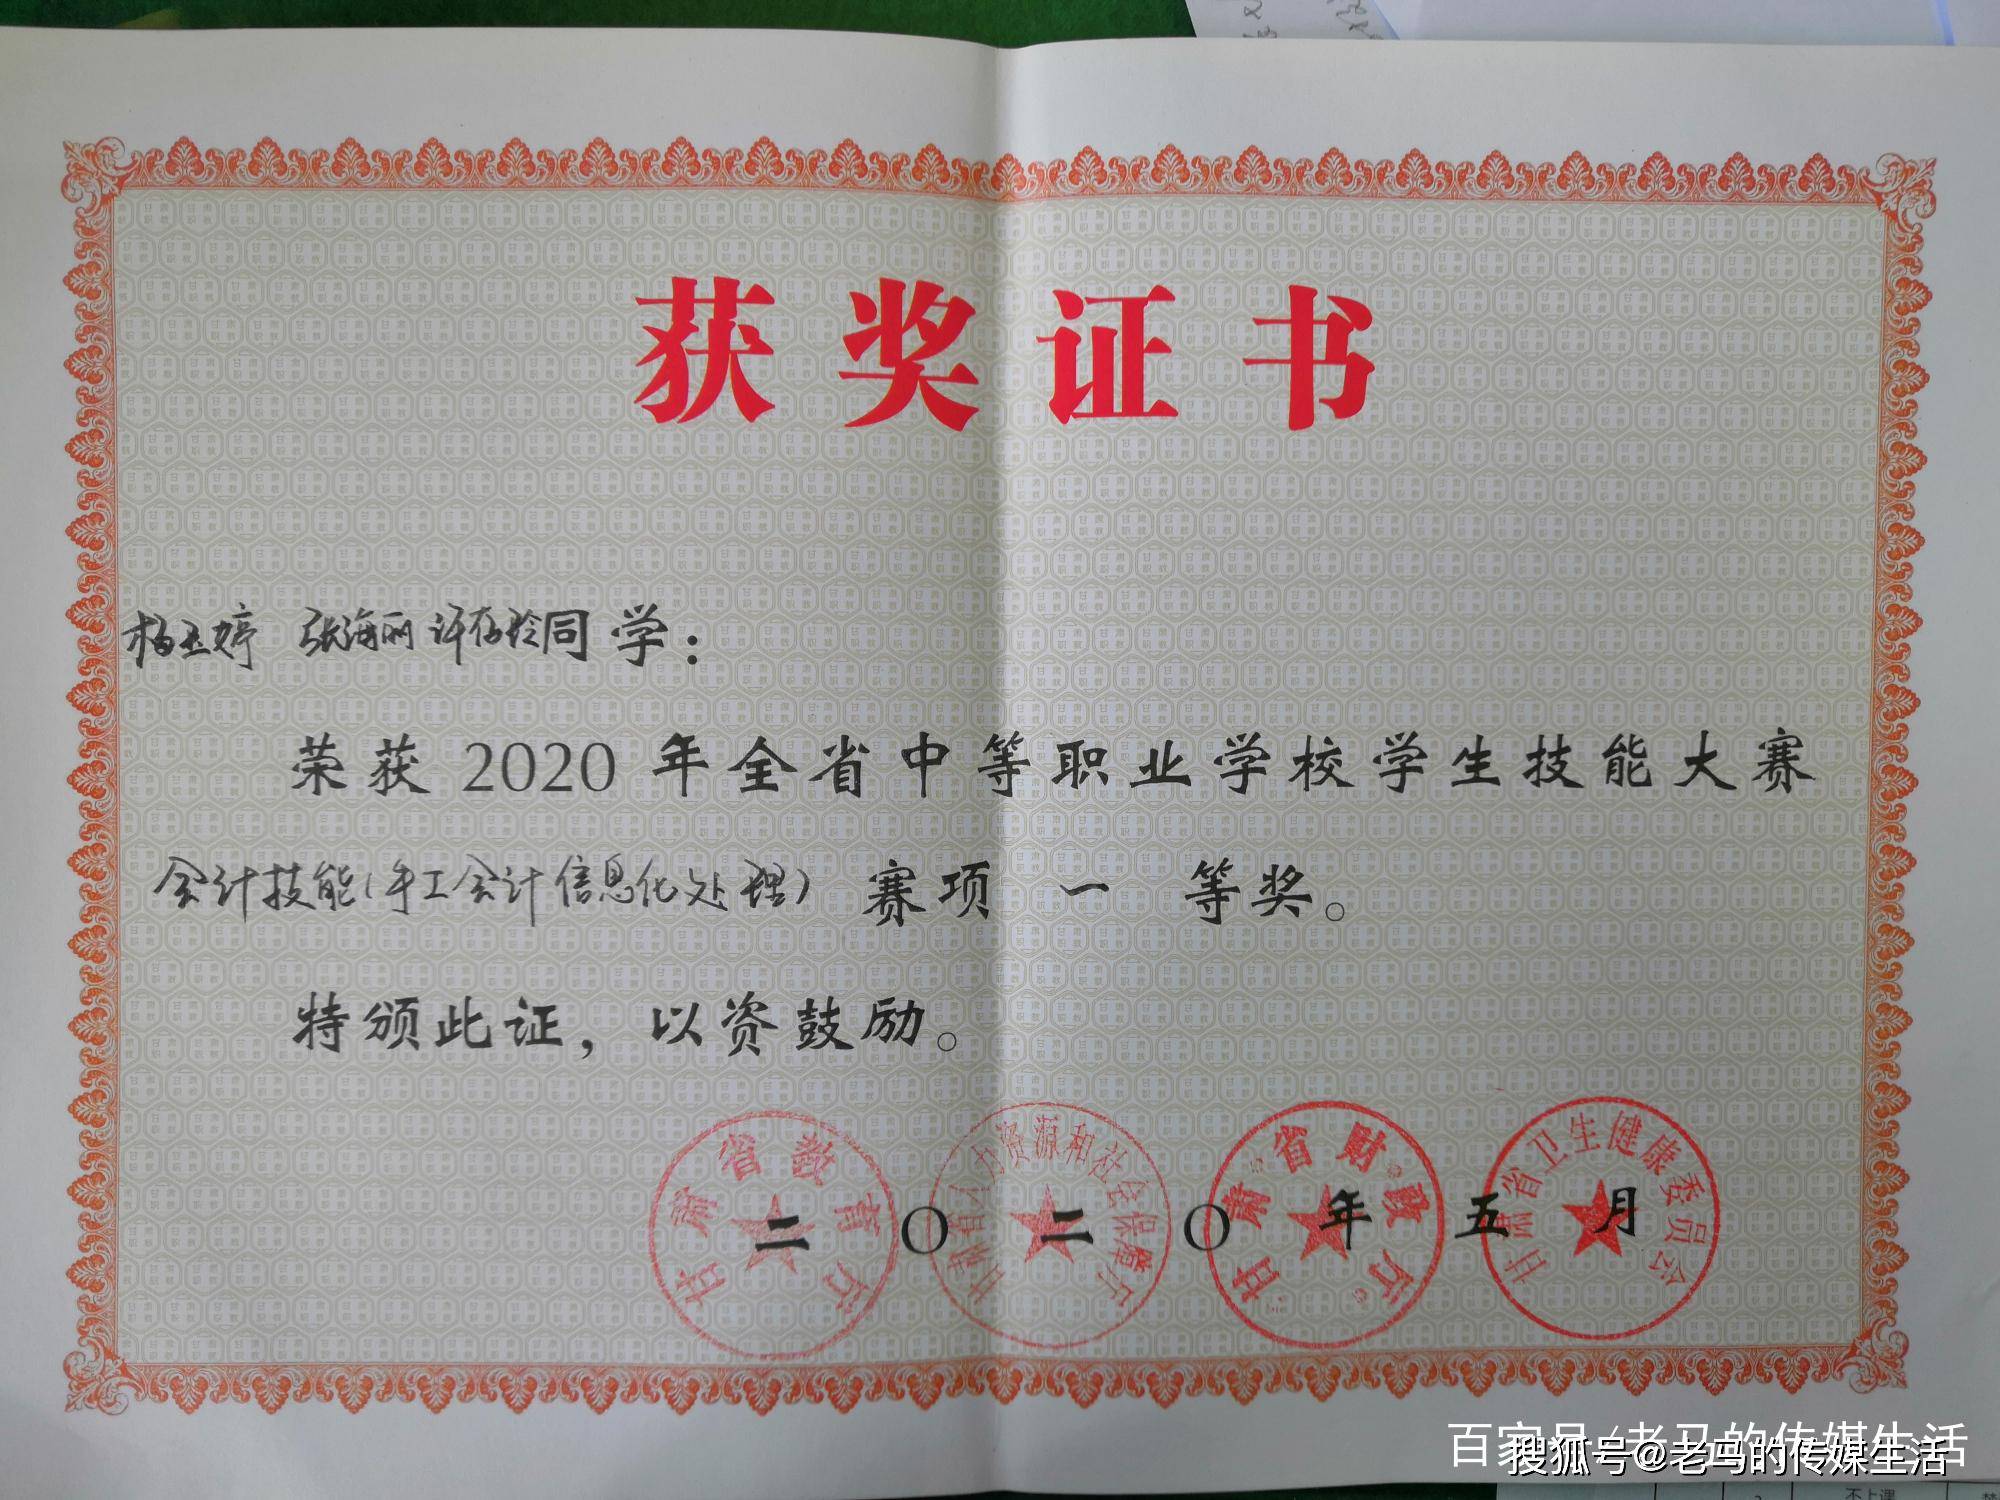 获奖证书
杨玉婷 张海丽 许存玲同学：
荣获 2020 年全省中等职业学校学生技能大赛
会计技能(手工会计信息化处理) 赛项 一 等奖。
特颁此证，以资鼓励。
甘肃省教育厅
甘肃省人力资源和社会保障厅
甘肃省财政厅
甘肃省卫生健康委员会
二〇二〇年五月
百家号/老马的传媒生活
搜狐号@老马的传媒生活
不上课